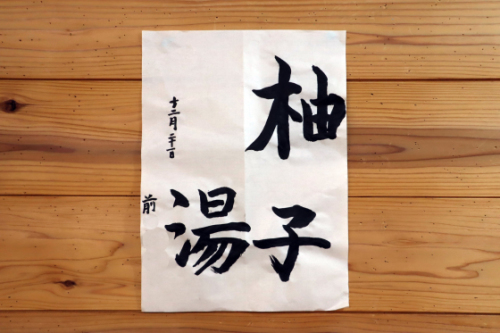 柚子
湯
十二月二十一日
前